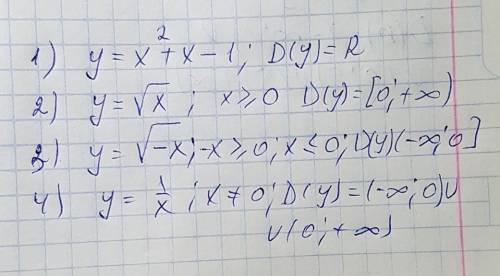 1) y = x² + x − 1; D(y) = R
2) y = √x ; x ⩾ 0 D(y) = [0; +∞)
3) y = √−x; −x ⩾ 0; x ≤ 0; D(y) (−∞; 0]
4) y = 1/x ; x ≠ 0; D(y) = (−∞; 0) ∪
∪ (0; +∞)